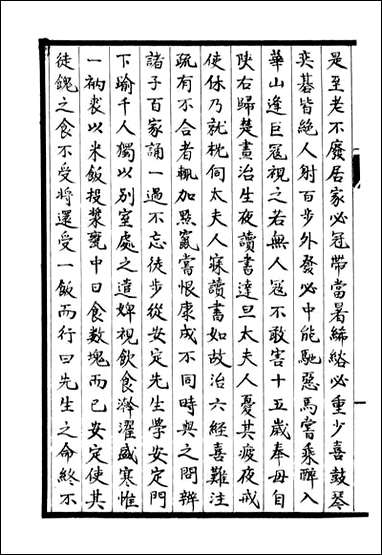 是至老不廢居家必冠帶當暑絺綌必重少喜鼓琴
奕碁皆絶人射百步外發必中能馳惡馬嘗乘醉入
華山逢巨冦視之若無人冦不敢害十五歲奉母自
陜右歸楚晝治生夜讀書達旦太夫人憂其疲夜戒
使休乃就枕伺太夫人寐讀書如故治六經喜難注
疏有不合者輒加㸃竄嘗恨康成不同時與之問辨
諸子百家誦一過不忘徒步從安定先生學安定門
下踰千人獨以别室處之遣婢視飲食澣濯盛寒惟
一衲裘以米飯投漿甕中日食數塊而已安定使其
徒餽之食不受將還受一飯而行曰先生之命終不